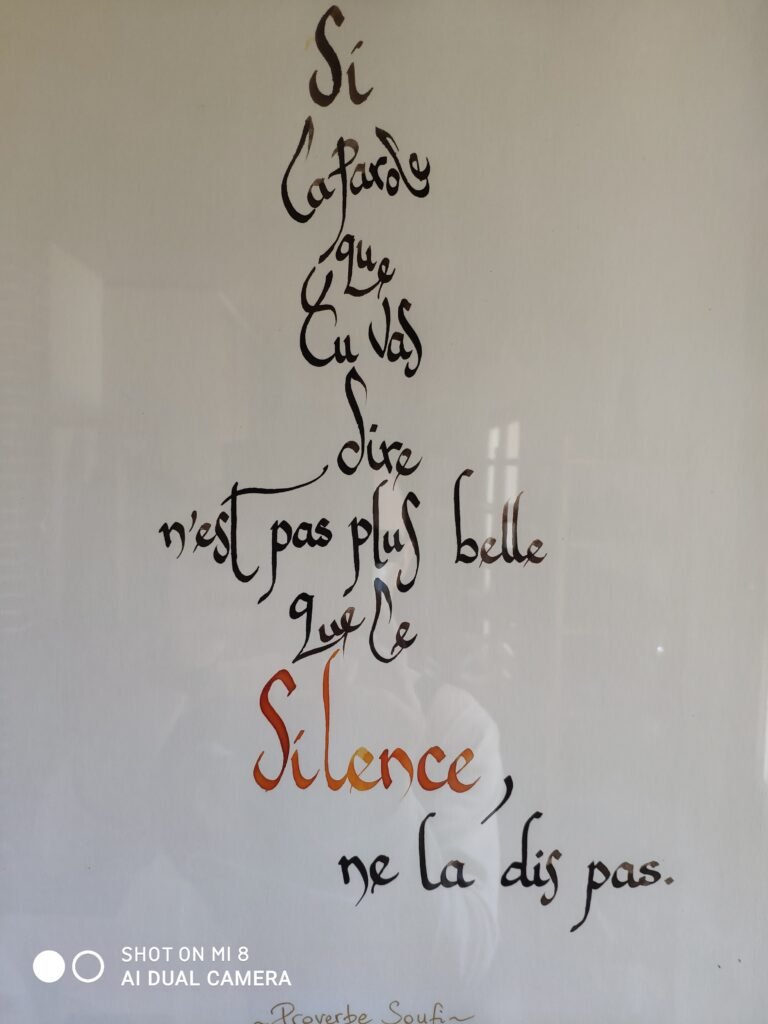 Si
la Parole
que
tu vas
dire
n'est pas plus belle
que le
Silence,
ne la dis pas.
SHOT ON MI 8
AI DUAL CAMERA
~Proverbe Soufi~